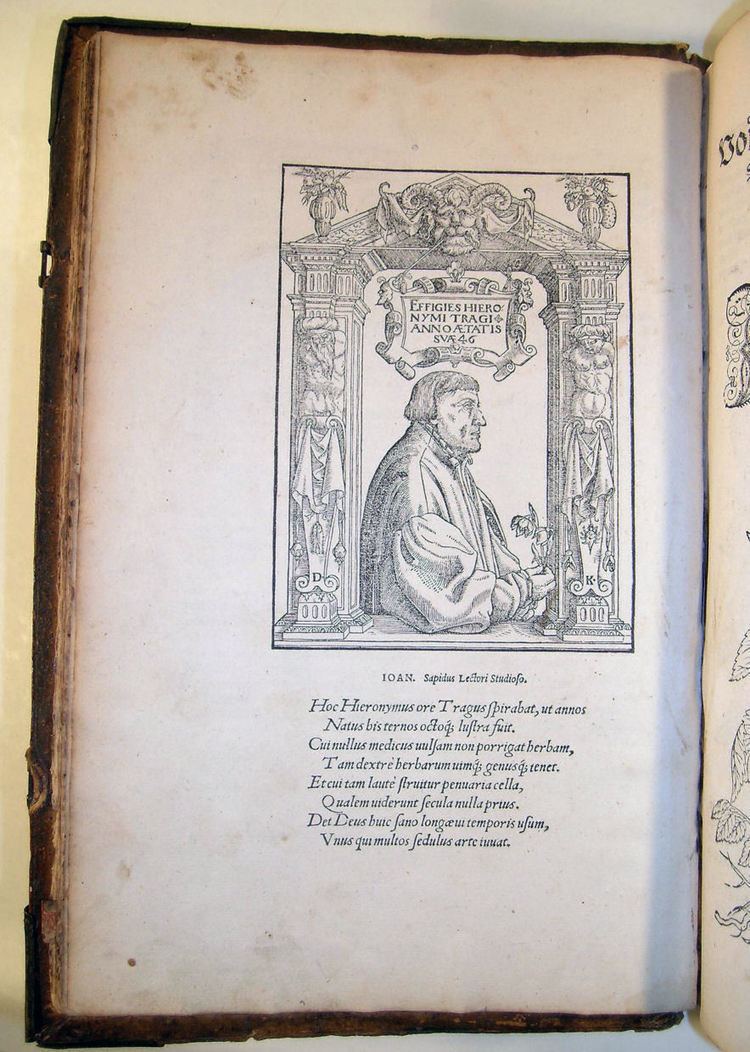 EFFIGIES HIERO
NYMI TRAGI
ANNO ÆTATIS
SVÆ 46
D
K
IOAN. Sapidus Lectori Studioſo.
Hoc Hieronymus ore Tragus ſpirabat, ut annos
Natus bis ternos octoq́; luſtra fuit.
Cui nullus medicus uulſam non porrigat herbam,
Tam dextrè herbarum uimq́; genusq́; tenet.
Et cui tam lautè ſtruitur penuaria cella,
Qualem uiderunt ſecula nulla prius.
Det Deus huic ſano longæui temporis uſum,
Vnus qui multos ſedulus arte iuuat.